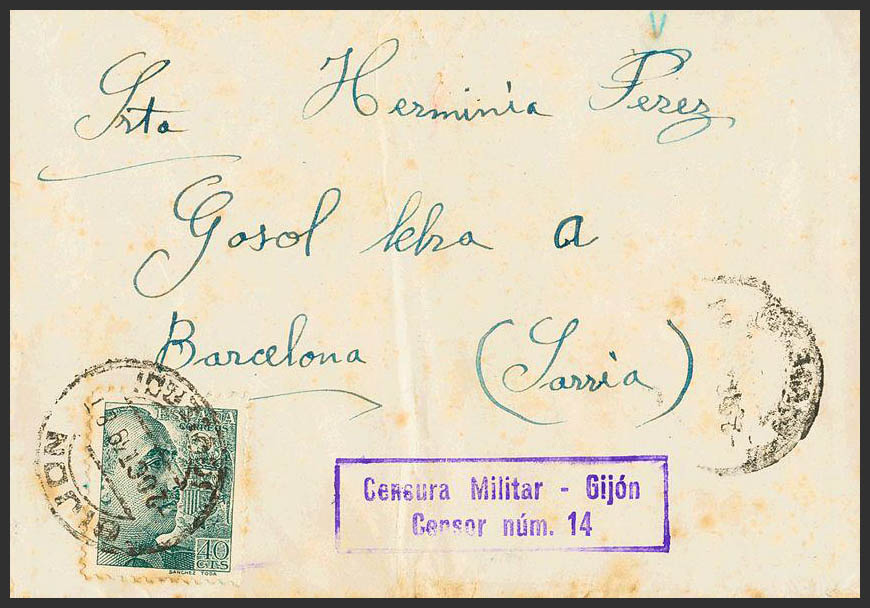 Srta Herminia Perez
Gosol letra a
Barcelona (Sarria)
ESPAÑA
CORREOS
GIJON
40
CTS
SANCHEZ TODA
Censura Militar - Gijón
Censor núm. 14